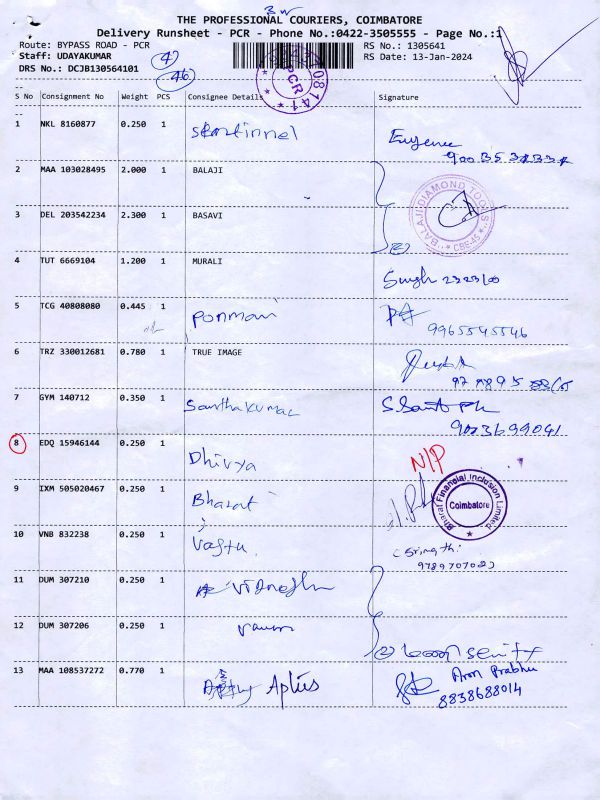 3W
THE PROFESSIONAL COURIERS, COIMBATORE
Delivery Runsheet - PCR - Phone No.:0422-3505555 - Page No.:1
Route: BYPASS ROAD - PCR RS No.: 1305641
Staff: UDAYAKUMAR RS Date: 13-Jan-2024
DRS No.: DCJB130564101
46
PCR
S No Consignment No Weight PCS Consignee Details Signature
1 NKL 8160877 0.250 1
Eugene
2 MAA 103028495 2.000 1 BALAJI
BALAJI DIAMOND TOOLS CBE-45
3 DEL 203542234 2.300 1 BASAVI
4 TUT 6669104 1.200 1 MURALI
Singh
5 TCG 40808080 0.445 1 Ponmani
9965545546
6 TRZ 330012681 0.780 1 TRUE IMAGE
7 GYM 140712 0.350 1 Santhakumar
8 EDQ 15946144 0.250 1 Dhivya
N/P
9 IXM 505020467 0.250 1 Bharat
Bharat Financial Inclusion Limited
Coimbatore
10 VNB 832238 0.250 1 Vastu
9789707023
11 DUM 307210 0.250 1 Vignesh
12 DUM 307206 0.250 1
13 MAA 108537272 0.770 1 Aptus
Arun Prabhu
8838688014